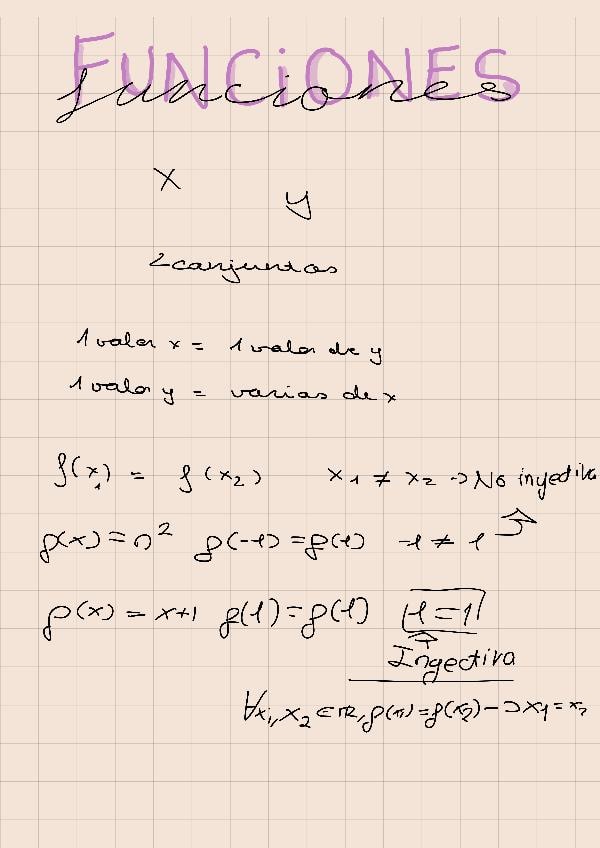 FUNCiONES
funciones
x
y
2 conjuntos
1 valor x = 1 valor de y
1 valor y = varias de x
f(x₁) = f(x₂) x₁ ≠ x₂ → No inyectiva
f(x) = n² f(-1) = f(1) -1 ≠ 1
f(x) = x+1 f(1) = f(1) 1 = 1
Ingectiva
∀x₁, x₂ ∈ ℝ, f(x₁) = f(x₂) → x₁ = x₂